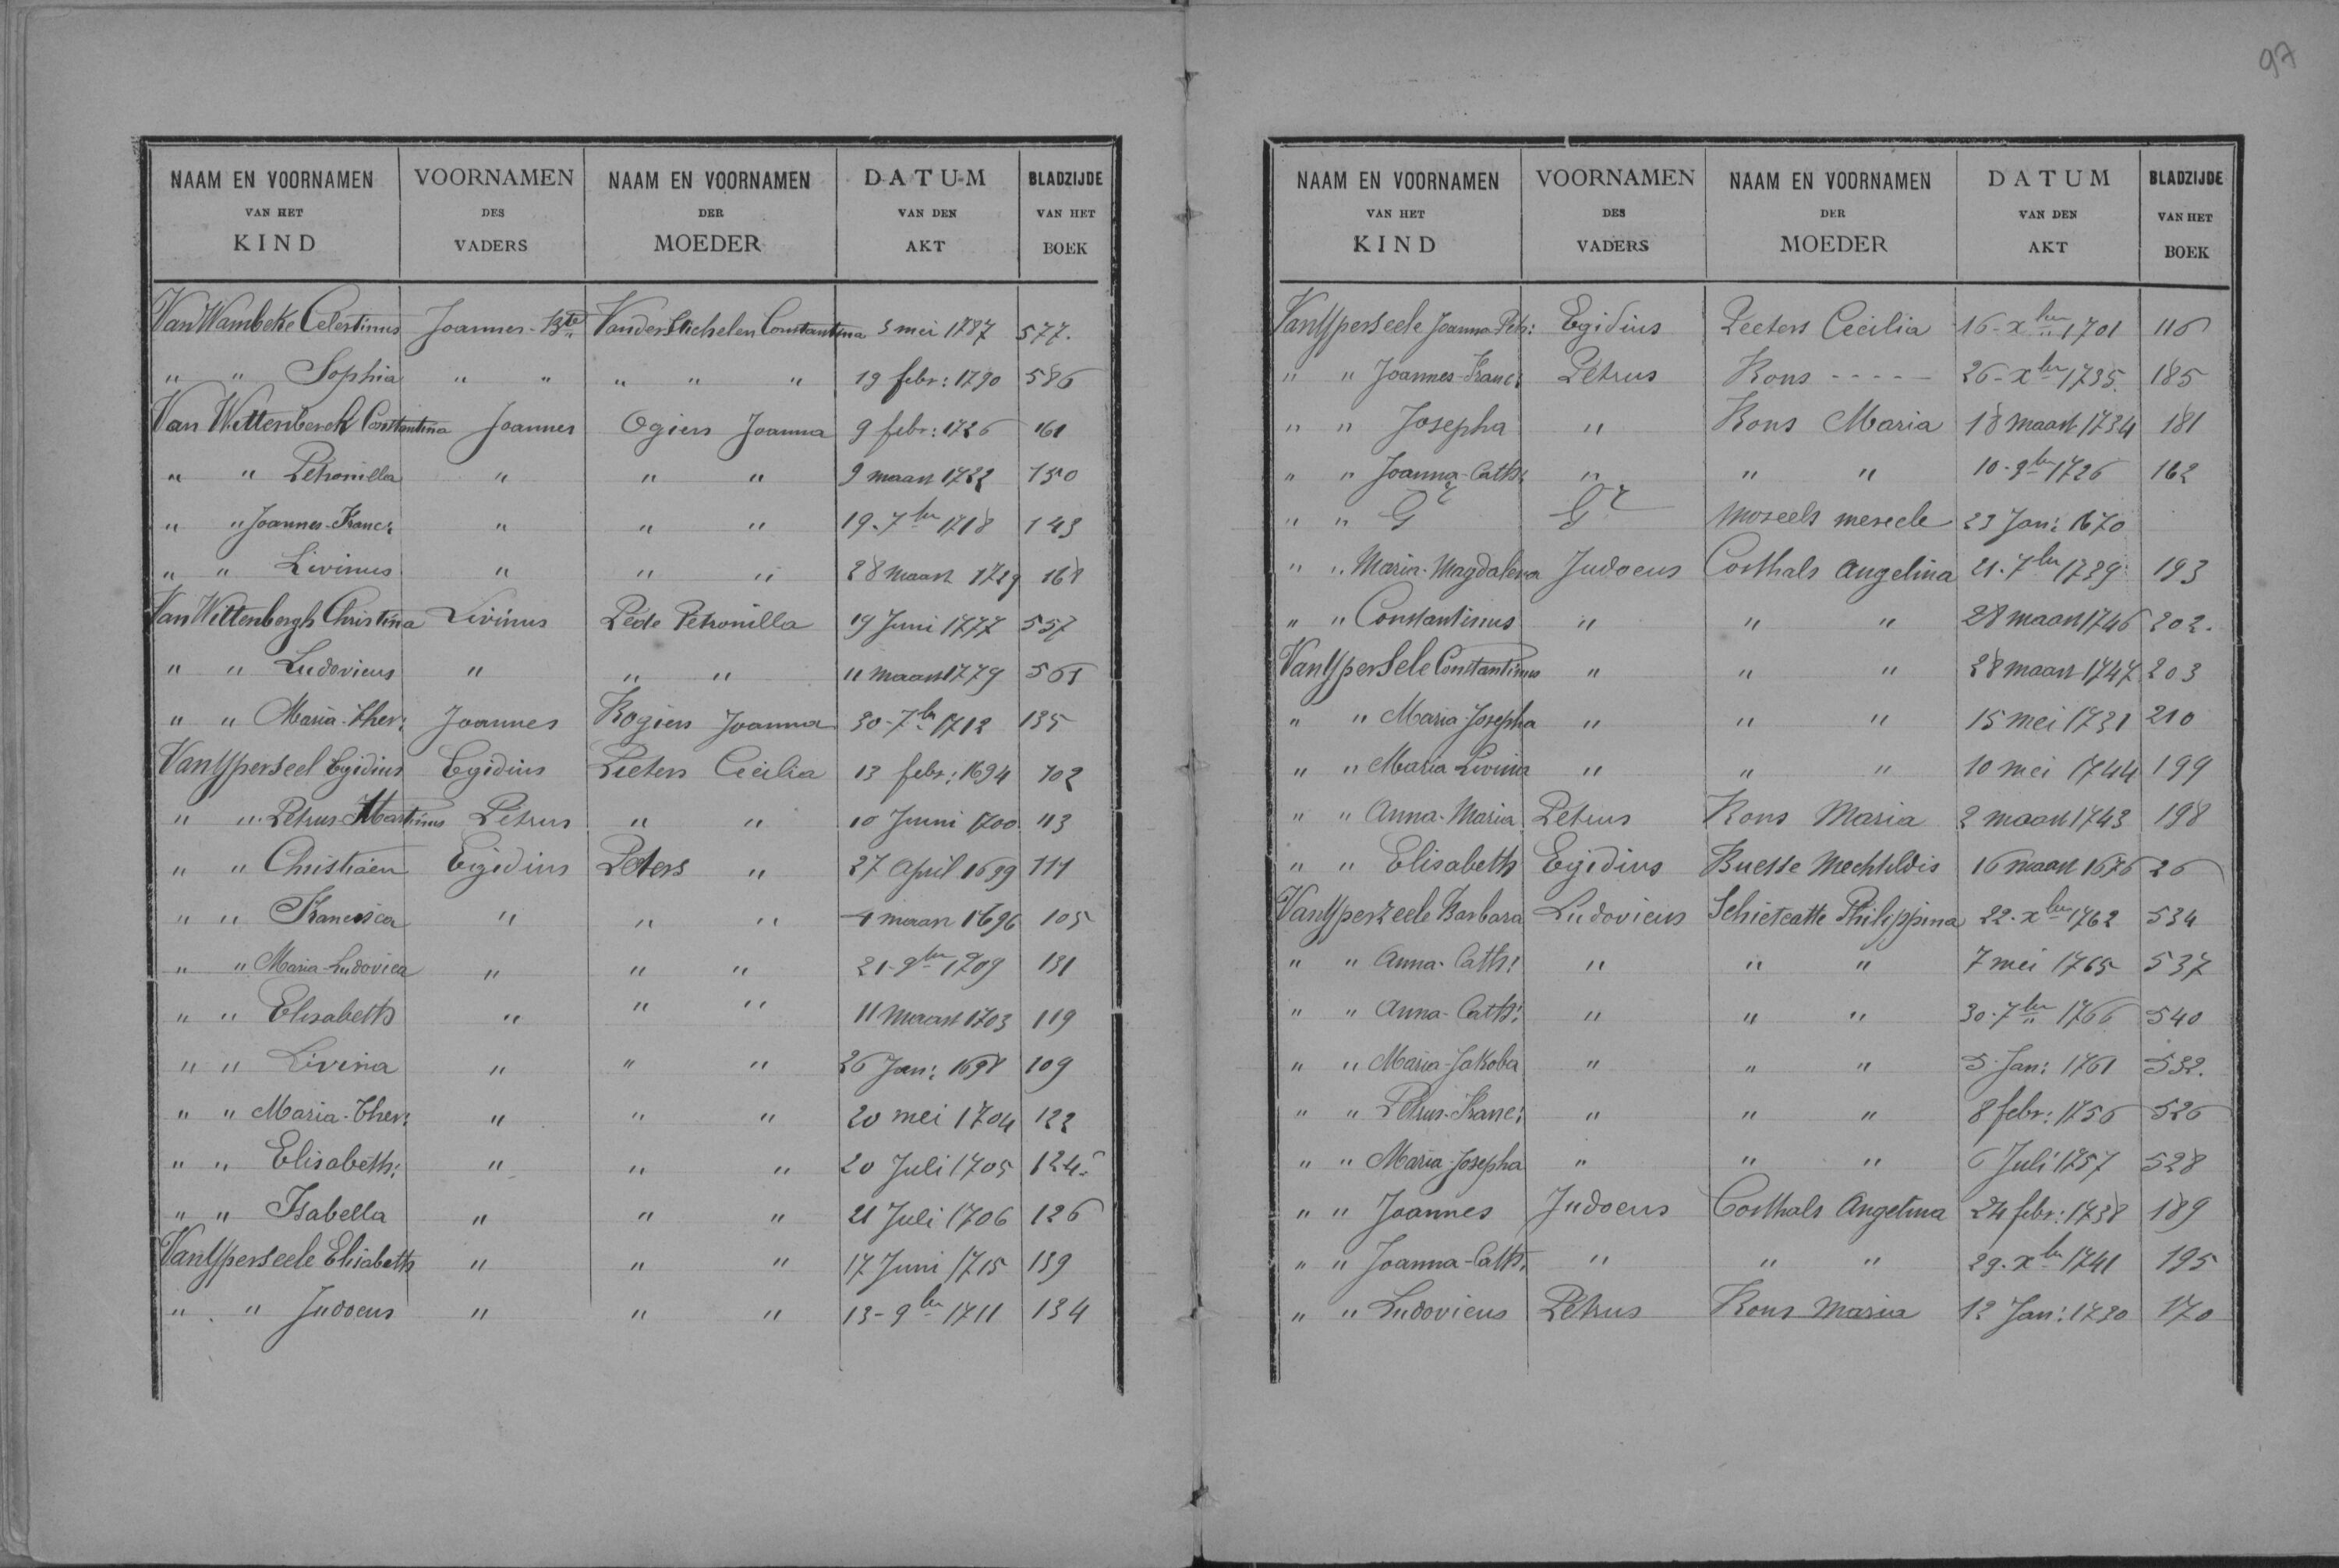 97
NAAM EN VOORNAMEN VAN HET KIND | VOORNAMEN DES VADERS | NAAM EN VOORNAMEN DER MOEDER | DATUM VAN DEN AKT | BLADZIJDE VAN HET BOEK
Van Wambeke Celestinus Joannes-Bte Vanderstichelen Constantina 3 mei 1787 577.
" " Sophia " " " " " 19 febr: 1790 586
Van Wittenberch Constantina Joannes Ogiers Joanna 9 febr: 1726 161
" " Petronilla " " " 9 maart 1722 150
" " Joannes-Franc: " " " 19-7ber 1718 143
" " Livinus " " " 28 maart 1729 168
Van Wittenbergh Christina Livinus Pede Petronilla 19 Juni 1777 557
" " Ludovicus " " " 11 maart 1779 561
" " Maria-Ther: Joannes Rogiers Joanna 30-7br 1712 135
Van Yperseel Egidius Egidius Pieters Cecilia 13 febr: 1694 102
" " Petrus-Martinus Petrus " " 10 Juni 1700 113
" " Christiaen Egidius Peters " 27 April 1699 111
" " Francisca " " " 4 maart 1696 105
" " Maria-Ludovica " " " 21-9ber 1709 131
" " Elisabeth " " " 11 maart 1703 119
" " Livina " " " 26 Jan: 1698 109
" " Maria-Ther: " " " 20 mei 1704 122
" " Elisabeth: " " " 20 Juli 1705 124
" " Isabella " " " 21 Juli 1706 126
Van Yperseele Elisabeth " " " 17 Juni 1715 139
" " Judocus " " " 13-9ber 1711 134
NAAM EN VOORNAMEN VAN HET KIND | VOORNAMEN DES VADERS | NAAM EN VOORNAMEN DER MOEDER | DATUM VAN DEN AKT | BLADZIJDE VAN HET BOEK
Van Yperseele Joanna Petr: Egidius Peeters Cecilia 16-xber 1701 116
" " Joannes-Franc: Petrus Rons - - - - 26-xber 1735 185
" " Josepha " Rons Maria 18 maart 1734 181
" " Joanna-Cath: " " " 10-9ber 1726 162
" " G G Moreels 23 Jan: 1670
" " Maria-Magdalena Judocus Corthals Angelina 21-7ber 1739 193
" " Constantinus " " " 28 maart 1746 202.
Van Ypersele Constantinus " " " 28 maart 1747 203
" " Maria-Josepha " " " 15 mei 1731 210
" " Maria Livina " " " 10 mei 1744 199
" " Anna-Maria Petrus Rons Maria 2 maart 1743 198
" " Elisabeth Egidius Buesse Mechteldis 16 maart 1676 26
Van Yperzeele Barbara Ludovicus Schietcatte Philippina 22-xber 1762 534
" " Anna-Cath: " " " 7 mei 1765 537
" " Anna-Cath: " " " 30-7ber 1766 540
" " Maria-Jakoba " " " 5 Jan: 1761 532.
" " Petrus-Franc: " " " 8 febr: 1756 526
" " Maria-Josepha " " " 6 Juli 1757 528
" " Joannes Judocus Corthals Angelina 24 febr: 1738 189
" " Joanna-Cath: " " " 29-xber 1741 195
" " Ludovicus Petrus Rons Maria 12 Jan: 1730 170